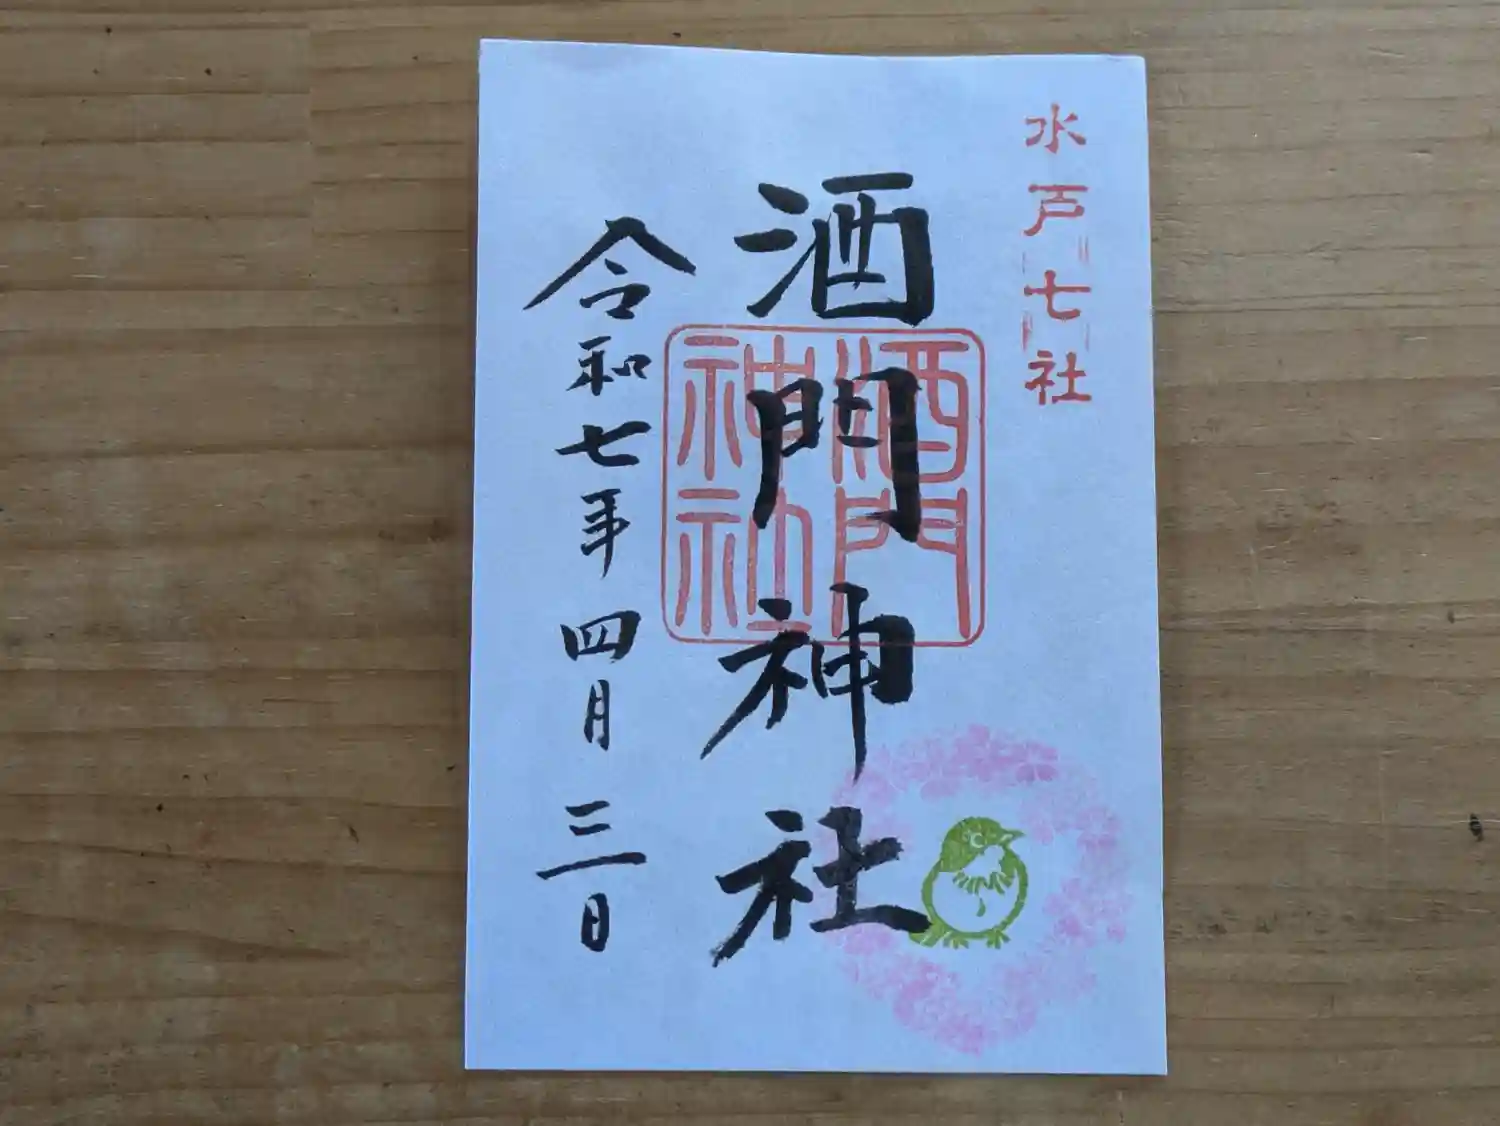 水戸七社
酒門神社
酒門神社
令和七年四月三日